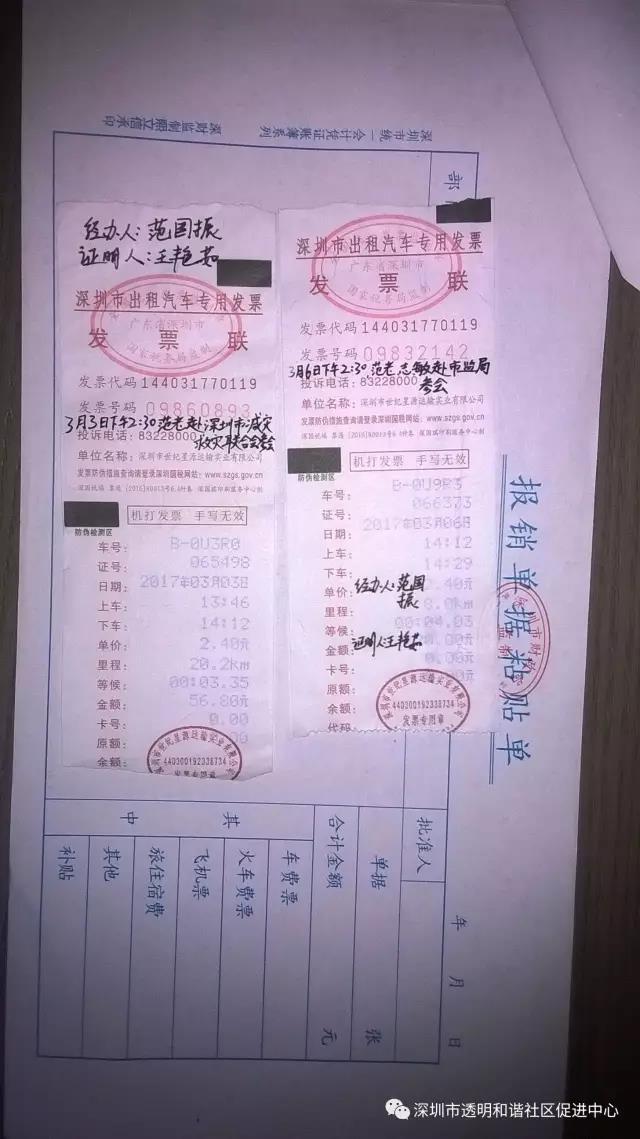 深圳市统一会计凭证账簿系列
深财监制熙立信承印
报销单据粘贴单
年 月 日
部
经办人:范国振
证明人:王艳茹
深圳市出租汽车专用发票
广东省深圳市
发 票 联
国家税务局监制
发票代码 144031770119
发票号码 09860893
3月3日下午2:30 范老赴深圳市减灾
救灾联合会会
投诉电话: 83228000
单位名称: 深圳市世纪星源运输实业有限公司
发票防伪措施查询请登录深圳国税网站: www.szgs.gov.cn
机打发票 手写无效
防伪检测区
车号: B-0U3R0
证号: 065498
日期: 2017年03月03日
上车: 13:46
下车: 14:12
单价: 2.40元
里程: 20.2km
等候: 00:03.35
金额: 56.80元
卡号: 0.00
原额: 00
余额:
440300192338734
发票专用章
深圳市出租汽车专用发票
广东省深圳市
发 票 联
国家税务局监制
发票代码 144031770119
发票号码 09832142
3月6日下午2:30 范老 志敏赴市监局
参会
投诉电话: 83228000
单位名称: 深圳市世纪星源运输实业有限公司
发票防伪措施查询请登录深圳国税网站: www.szgs.gov.cn
机打发票 手写无效
防伪检测区
车号: B-0U9R3
证号: 066373
日期: 2017年03月06日
上车: 14:12
下车: 14:29
单价: .40元
经办人:范国
振
里程: 8.0km
等候: 00:04.03
证明人王艳茹
金额: 0.00元
卡号: 0.00
原额:
余额:
代码
深圳市世纪星源运输实业有限公司
440300192338734
发票专用章
批准人
单据 张
合计金额 元
其中
车费票
火车费票
飞机票
旅住宿费
其他
补贴
深圳市透明和谐社区促进中心